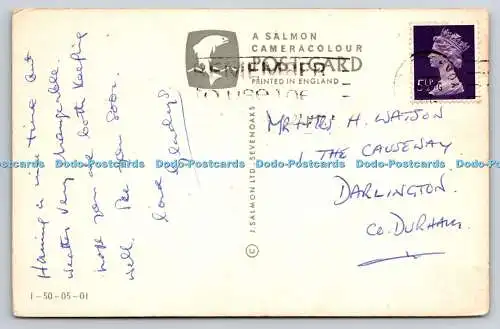 Having a nice time but
weather very changeable.
hope you are both keeping
well. See you soon.
love
A SALMON
CAMERACOLOUR
POST CARD
PRINTED IN ENGLAND
REMEMBER
TO USE
MR & MRS H. WATSON
1 THE CAUSEWAY
DARLINGTON.
Co. DURHAM.
© J. SALMON LTD., SEVENOAKS
1-50-05-01
Dodo-Postcards Dodo-Postcards Dodo-Postcards Dodo-Postcards Dodo-Postcards